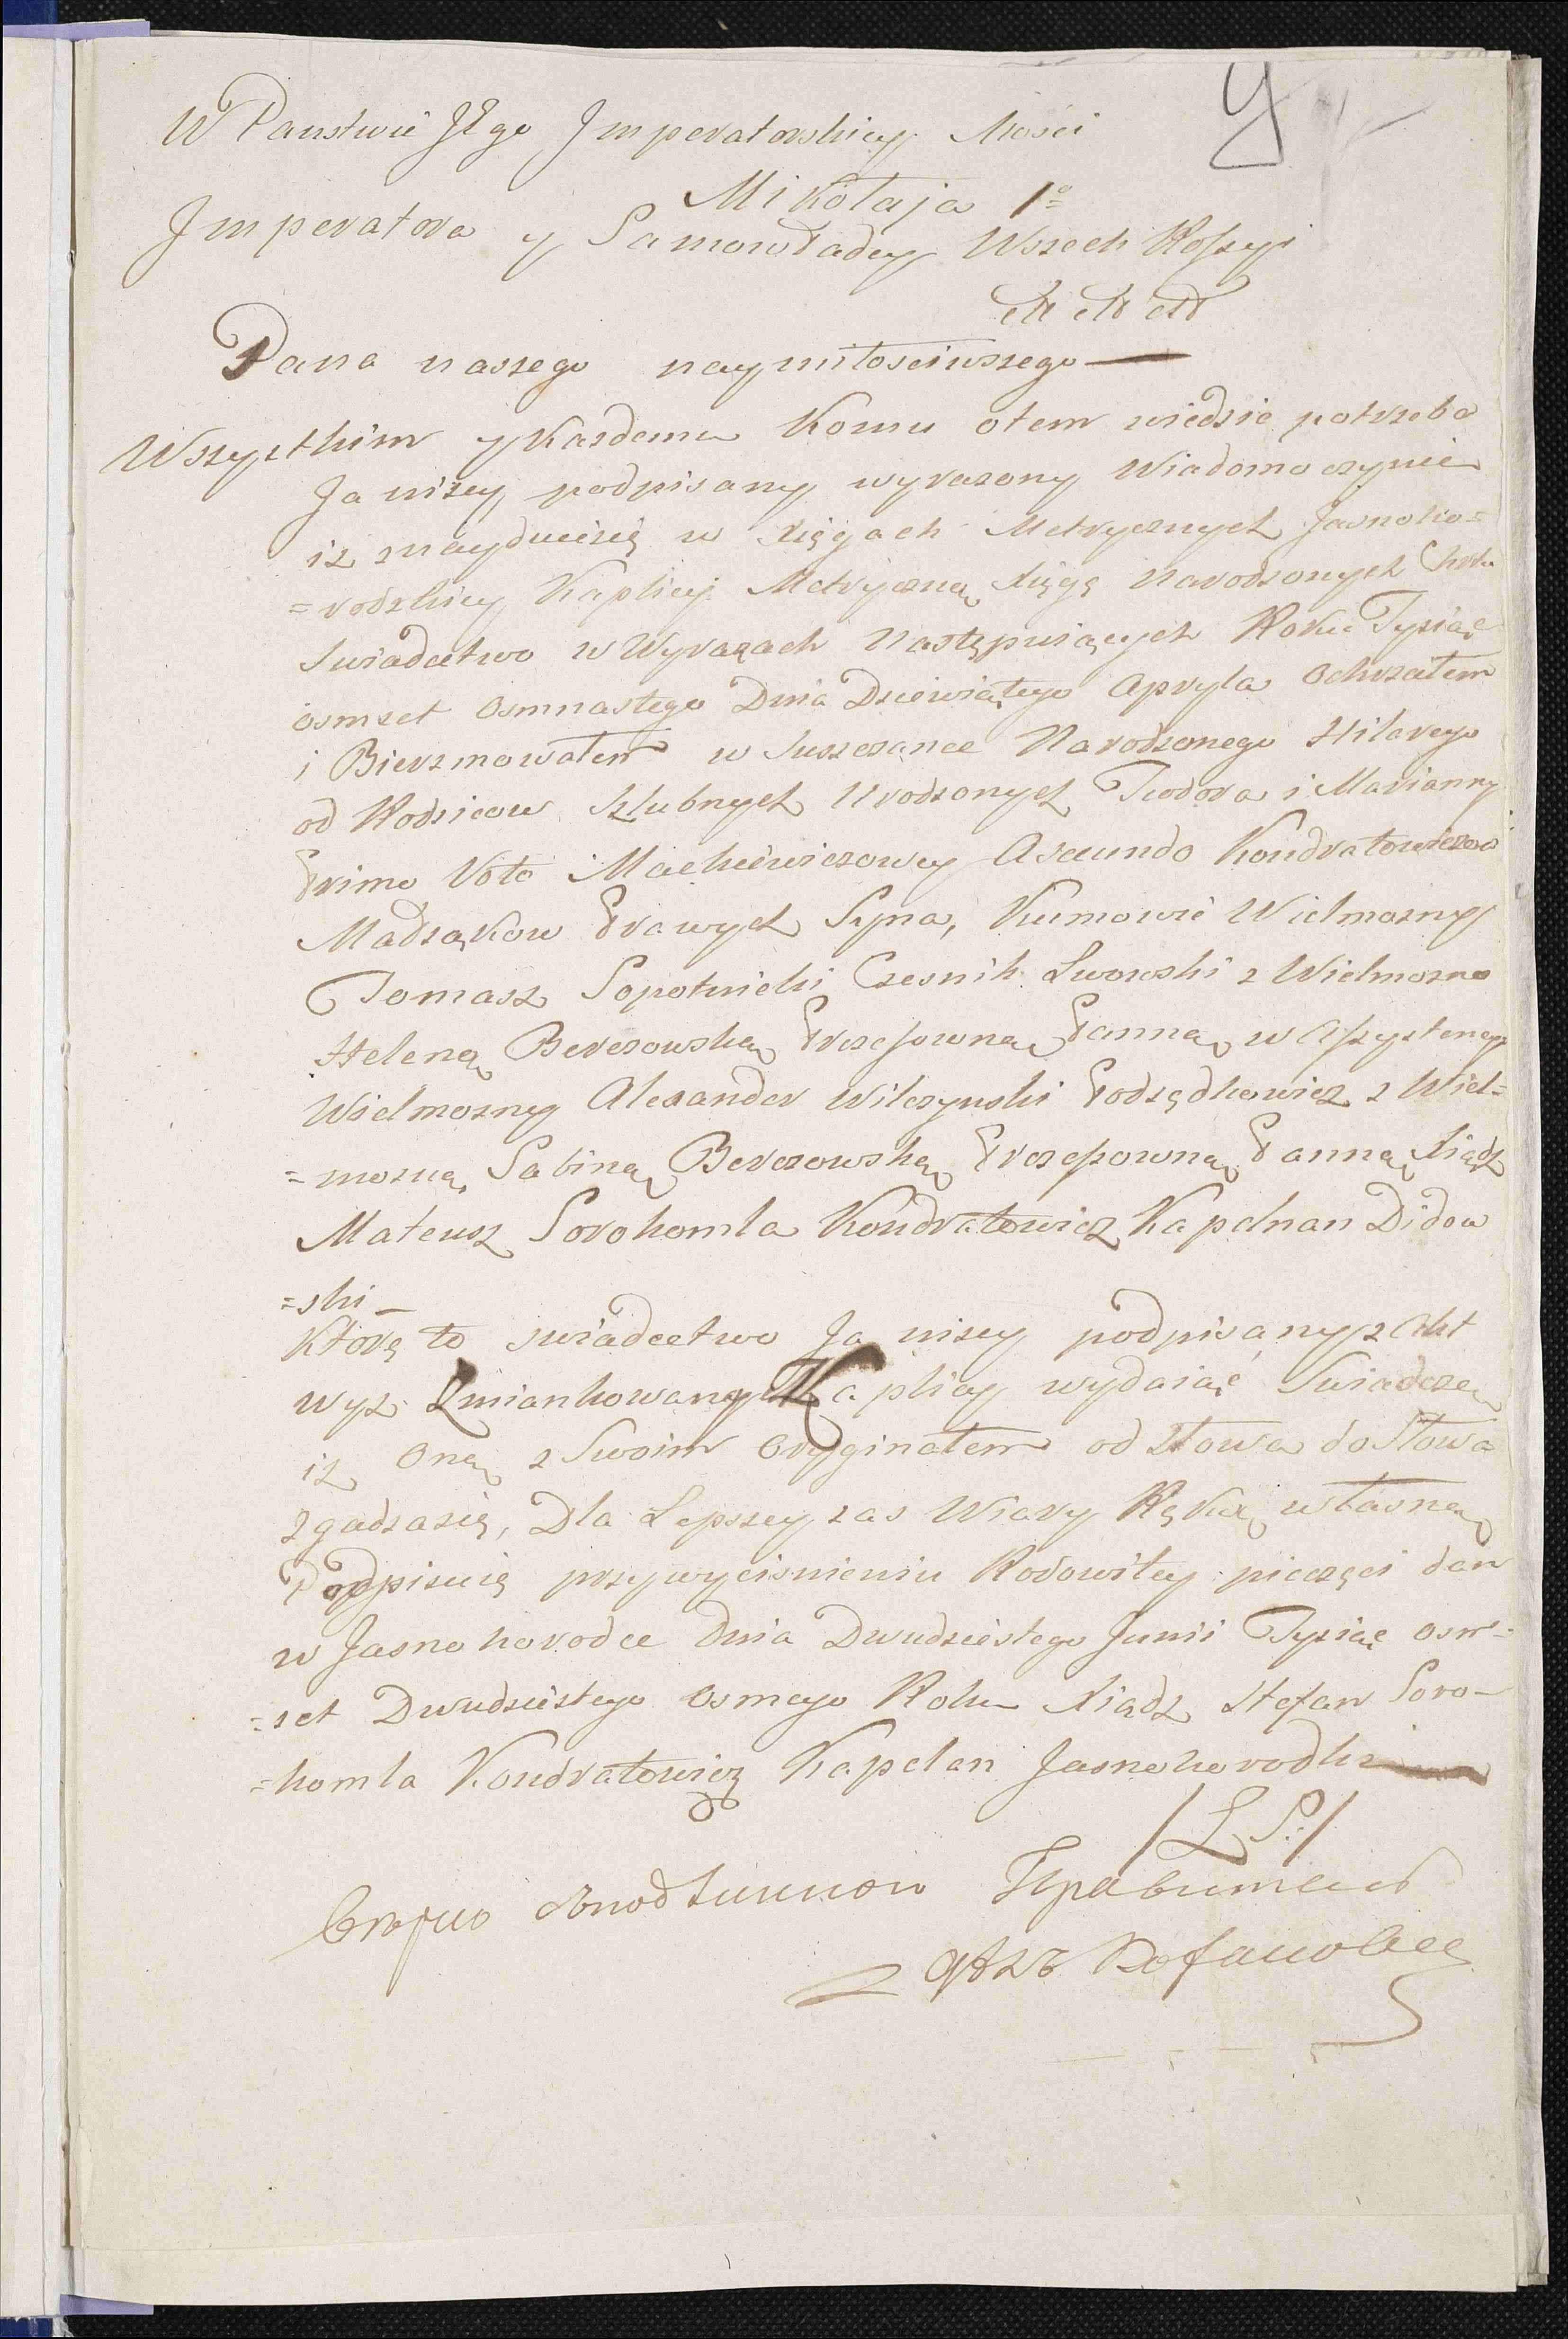 W Panstwie JEgo Jmperatorskiey Mości
Mikołaja 1º
Jmperatora y Samowładcy Wszech Rossyi
etc etc etc
Pana naszego naymiłosciwszego —
Wszystkim y Kazdemu Komu otem wiedzie potrzeba
Ja nizey podpisany wyrazony Wiadomo czynie
iz znayduiesię w Xięgach Metrycznych Jasnoho=
=rodzkiey Kaplicy Metryczną Xięgę Narodzonych
Swiadectwo w Wyrazach Następuiących Roku Tysiąc
osmset Osmnastego Dnia Dziewiątego Apryla Ochrzciłem
i Bierzmowałem w Narodzonego Hilarego
od Rodzicow Szlubnych Urodzonych Teodora i Marianny
Primo Voto Machiewiczowey Asecundo Kondratowiczow
Madząkow Prawych Syna, Kumowie Wielmozny
Tomasz Sopotnicki Czesnik Lwowski z Wielmozno
Heleną Berezowską Prezesowną Panną w Assystency
Wielmozny Alexander Wilczynski Podsędkowicz z Wiel=
=mozną Sabiną Berezowską Prezesowną Panną Xiądz
Mateusz Sorokomla Kondratowicz Kapelnan Didow
=ski —
Ktorę to swiadectwo Ja nizey podpisany z Akt
wyz Zmiankowaney Kaplicy wydaiąć Swiadczę
iz Oną z Swoim Oryginałem od Słowa do Słowa
zgadzasię, Dla Lepszey zas Wiary Ręką własną
Podpisuię przywycisnieniu Rodowitey pieczęci dan
w Jasnohorodce Dnia Dwudziestego Junii Tysiąc osm=
=set Dwudziestego Osmego Roku Xiądz Stefan Soro=
=komla Kondratowicz Kapelan Jasnohorodki
/L S:/